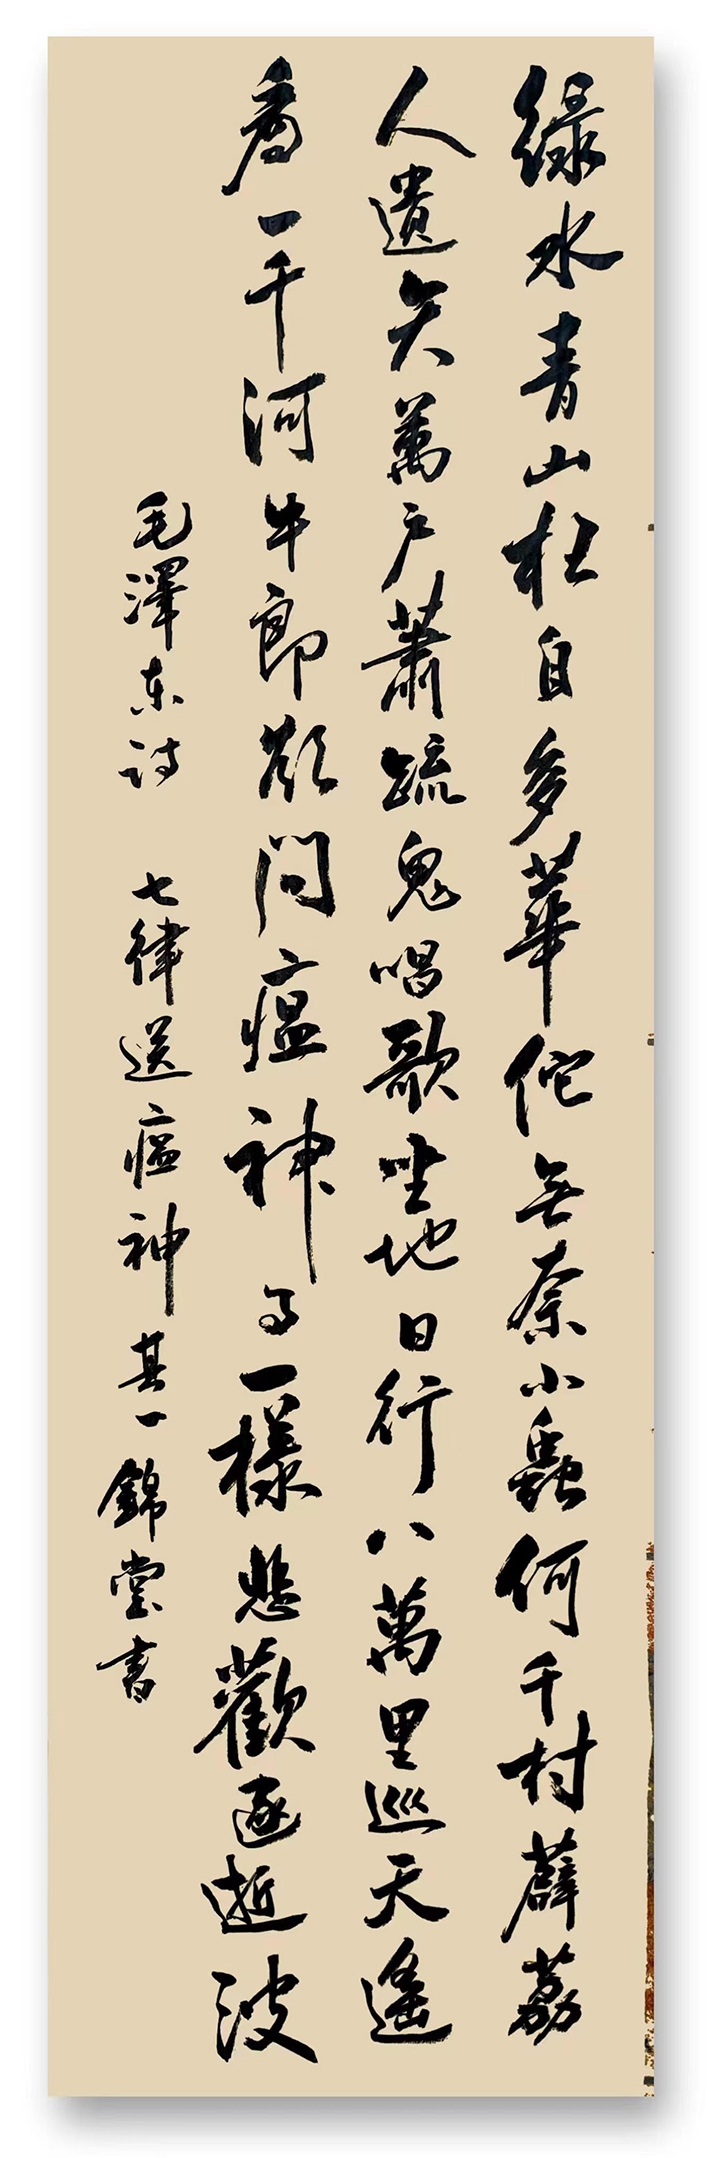 綠水青山枉自多華佗無奈小蟲何千村薜荔
人遺矢萬戶蕭疏鬼唱歌坐地日行八萬里巡天遙
看一千河牛郎欲問瘟神事一樣悲歡逐逝波
毛澤东詩 七律送瘟神其一 錦堂書